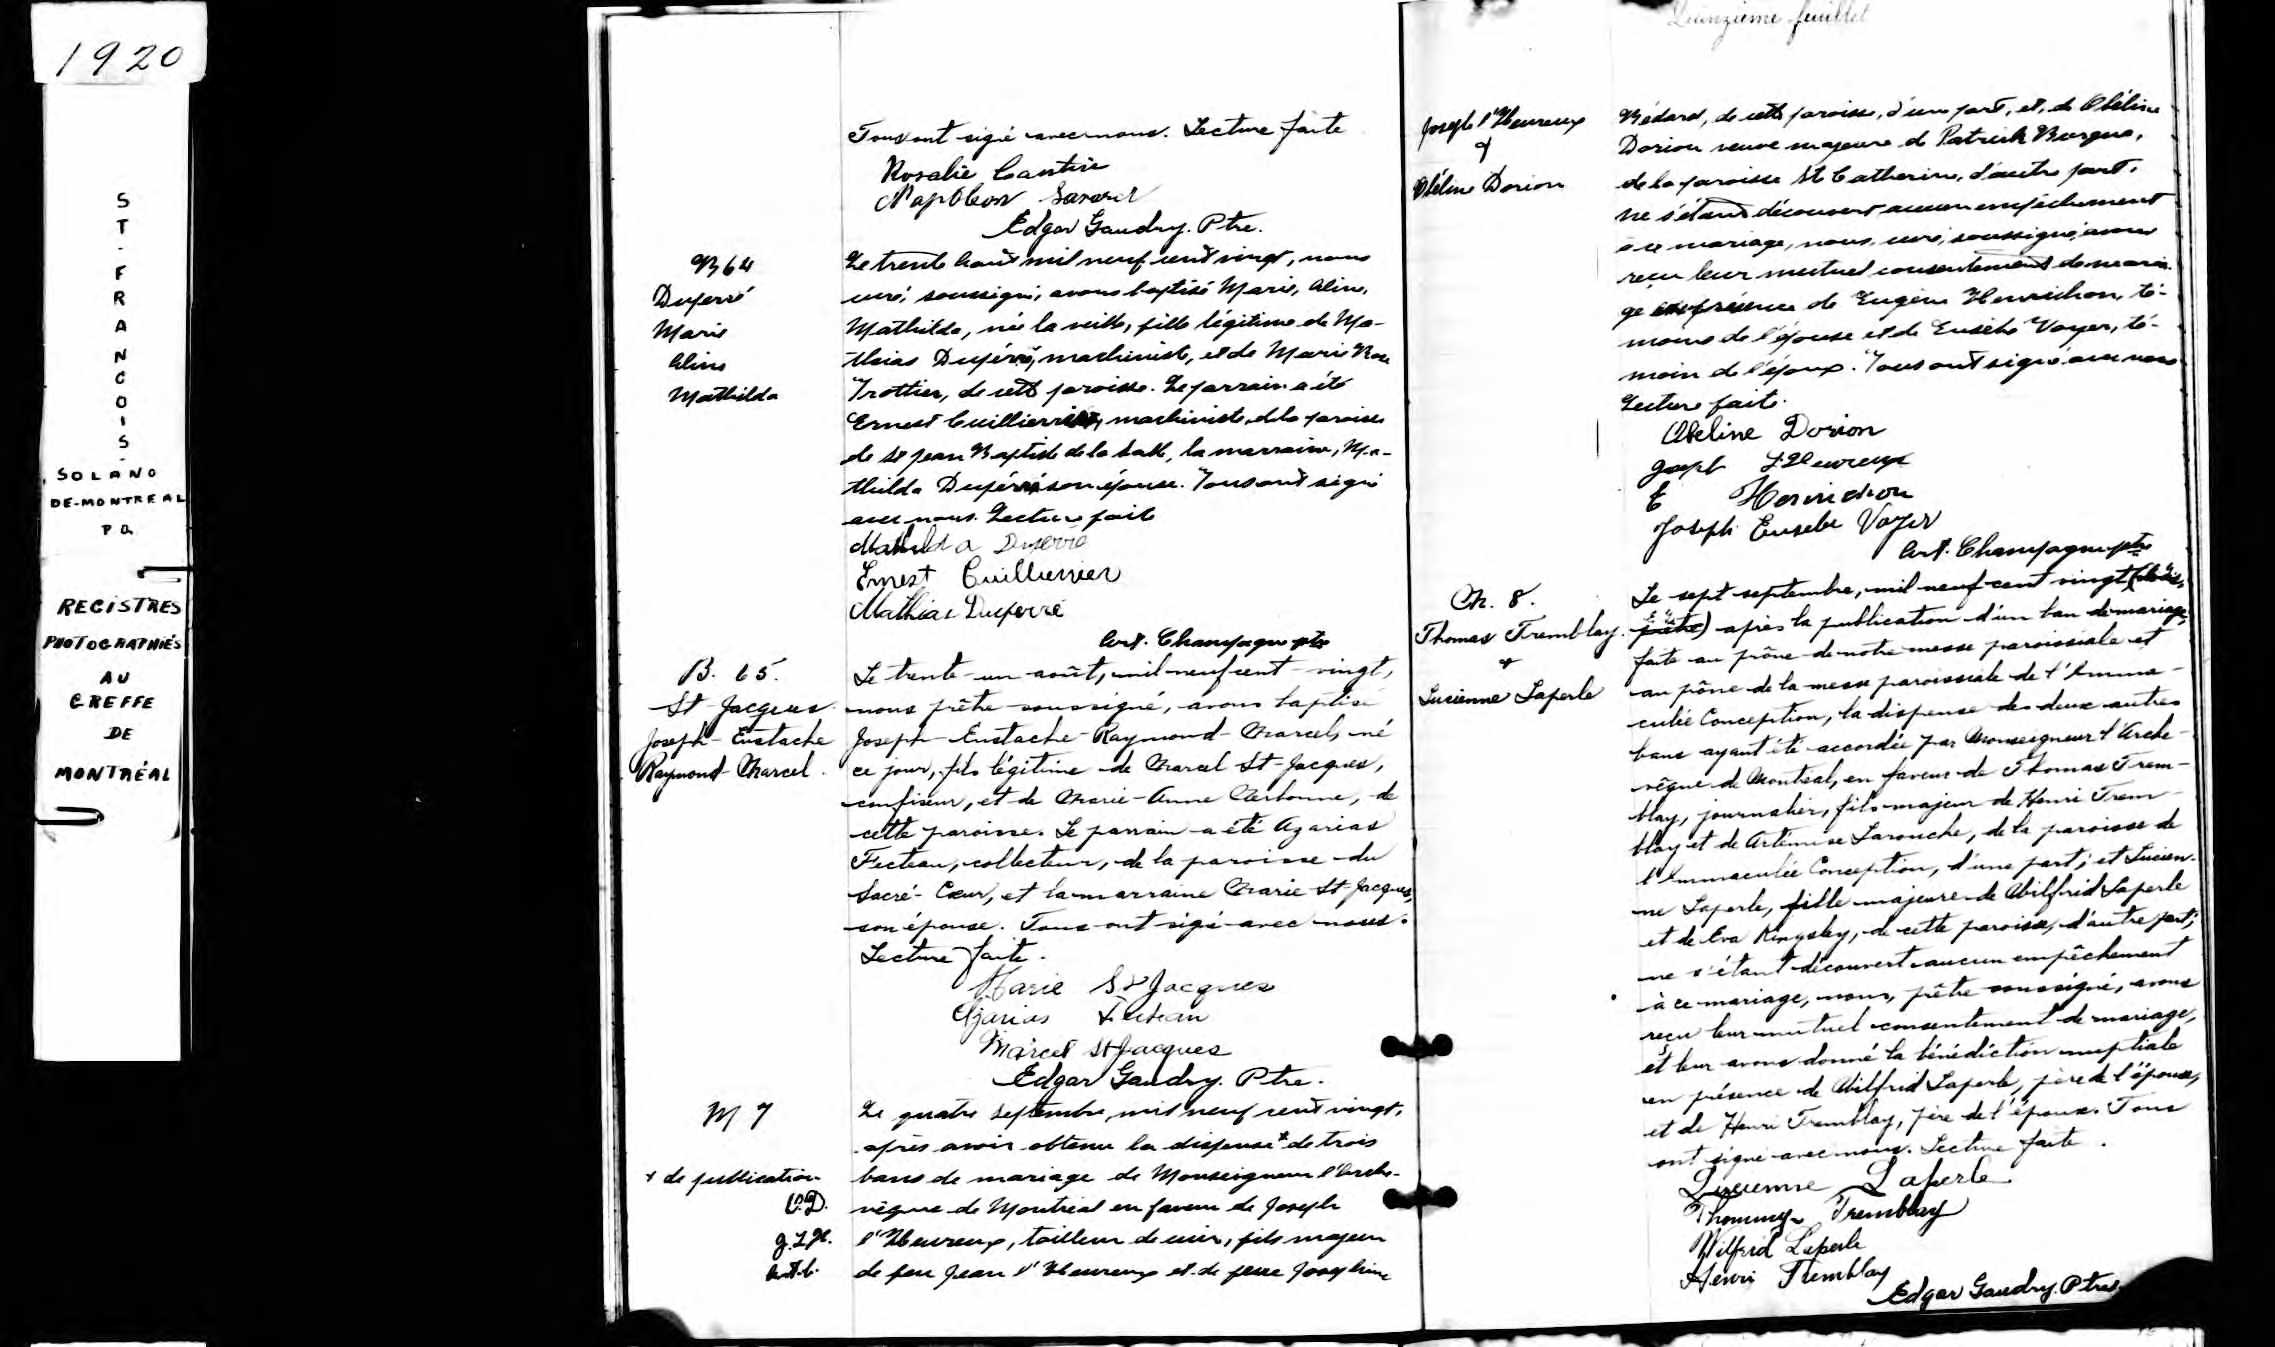 1920
ST-FRANCOIS-
SOLANO
DE-MONTREAL
P Q
REGISTRES
PHOTOGRAPHIÉS
AU
GREFFE
DE
MONTRÉAL
Tous ont signé avec nous. Lecture faite
Rosalie Cantin
Napoléon Savard
Edgar Gaudry. Ptre.
B 64
Duperré
Marie
Aline
Mathilda
Le trente août mil neuf cent vingt, nous
curé, soussigné, avons baptisé Marie, Aline,
Mathilda, née la veille, fille légitime de Ma-
thias Duperré, machiniste, et de Marie Rose
Trottier, de cette paroisse. Le parrain a été
Ernest Cuillierrier, machiniste, de la paroisse
de St Jean Baptiste de la Salle, la marraine, Ma-
thilda Duperré son épouse. Tous ont signé
avec nous. Lecture faite
Mathilda Duperré
Ernest Cuillierrier
Mathias Duperré
Art. Champagne ptre
B. 65.
St Jacques
Joseph-Eustache
Raymond-Marcel.
Le trente-un août, mil neuf cent-vingt,
nous prêtre soussigné, avons baptisé
Joseph-Eustache-Raymond-Marcel, né
ce jour, fils légitime de Marcel St-Jacques,
confiseur, et de Marie-Anne Narbonne, de
cette paroisse. Le parrain a été Azarias
Fecteau, collecteur, de la paroisse du
Sacré-Cœur, et la marraine Marie St Jacques,
son épouse. Tous ont signé avec nous.
Lecture faite.
Marie St Jacques
Azarias Fecteau
Marcel St Jacques
Edgar Gaudry. Ptre.
M 7
+ de publication
O.D.
J.L'H.
Art. C.
Le quatre septembre, mil neuf cent vingt,
après avoir obtenu la dispense + de trois
bans de mariage de Monseigneur l'Arche-
vêque de Montréal en faveur de Joseph
l'Heureux, tailleur de cuir, fils majeur
de feu Jean l'Heureux et de feue Joséphine
Quinzième feuillet
Joseph l'Heureux
&
Obéline Dorion
Bédard, de cette paroisse, d'une part, et, de Obéline
Dorion veuve majeure de Patrick Burque,
de la paroisse St Catherine, d'autre part.
Ne s'étant découvert aucun empêchement
à ce mariage, nous, curé, soussigné, avons
reçu leur mutuel consentement de maria-
ge en présence de Eugène Henrichon, té-
moins de l'épouse et de Eusèbe Voyer, té-
moin de l'époux. Tous ont signé avec nous
Lecture faite.
Obeline Dorion
Joseph L'Heureux
E Henrichon
Joseph Eusebe Voyer
Art. Champagne ptre
M. 8.
Thomas Tremblay.
+
Lucienne Laperle
Le sept septembre, mil neuf cent vingt
après la publication d'un ban de mariage,
faite au prône de notre messe paroissiale et
au pône de la messe paroissiale de l'Imma-
culée Conception, la dispense des deux autres
bans ayant été accordée par Monseigneur l'Arche-
vêque de Montréal, en faveur de Thomas Trem-
blay, journalier, fils majeur de Henri Trem-
blay et de Artémise Larouche, de la paroisse de
l'Immaculée Conception, d'une part; et Lucien-
ne Laperle, fille majeure de Wilfrid Laperle
et de Eva Kingsley, de cette paroisse, d'autre part;
ne s'étant découvert aucun empêchement
à ce mariage, nous, prêtre soussigné, avons
reçu leur mutuel consentement de mariage,
et leur avons donné la bénédiction nuptiale
en présence de Wilfrid Laperle, père de l'épouse,
et de Henri Tremblay, père de l'époux. Tous
ont signé avec nous. Lecture faite.
Lucienne Laperle
Thommy Tremblay
Wilfrid Laperle
Henri Tremblay
Edgar Gaudry. Ptre.